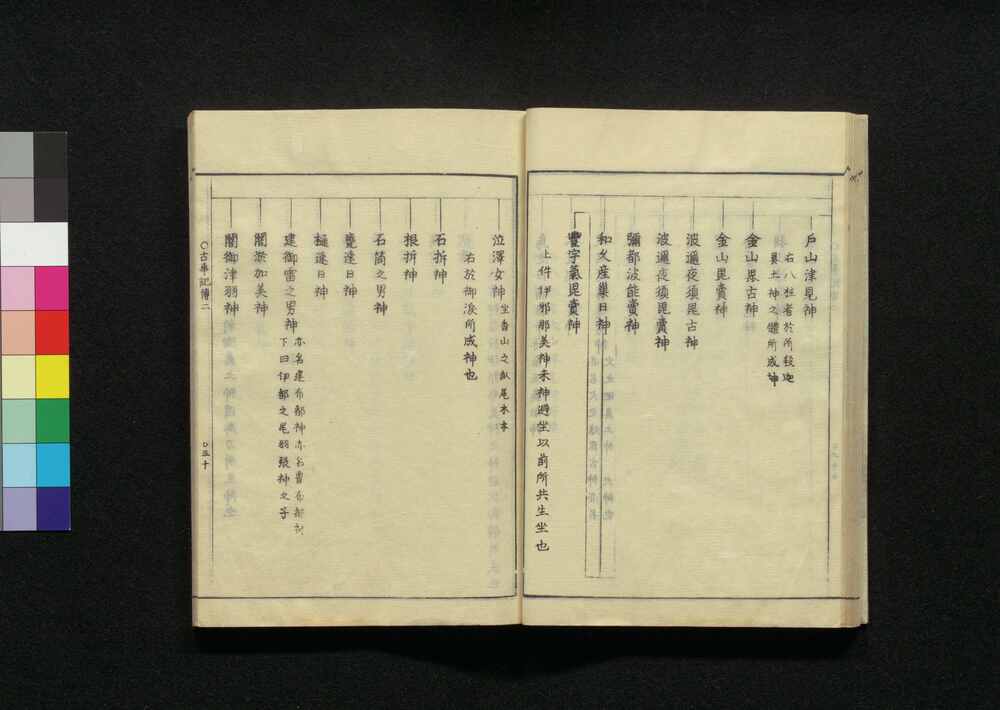 戸山津見神
右八柱者於所殺迦
具土神之體所成神
金山毘古神
金山毘賣神
波邇夜須毘古神
波邇夜須毘賣神
彌都波能賣神
和久産巢日神
豐宇氣毘賣神
上件伊邪那美神未神避坐以前所共生坐也
泣澤女神
坐香山之畝尾木本
右於御淚所成神也
石拆神
根拆神
石筒之男神
甕速日神
樋速日神
建御雷之男神
亦名建布都神亦名豐布都神
下曰伊都之尾羽張神之子
闇淤加美神
闇御津羽神
○古事記傳二
○五十